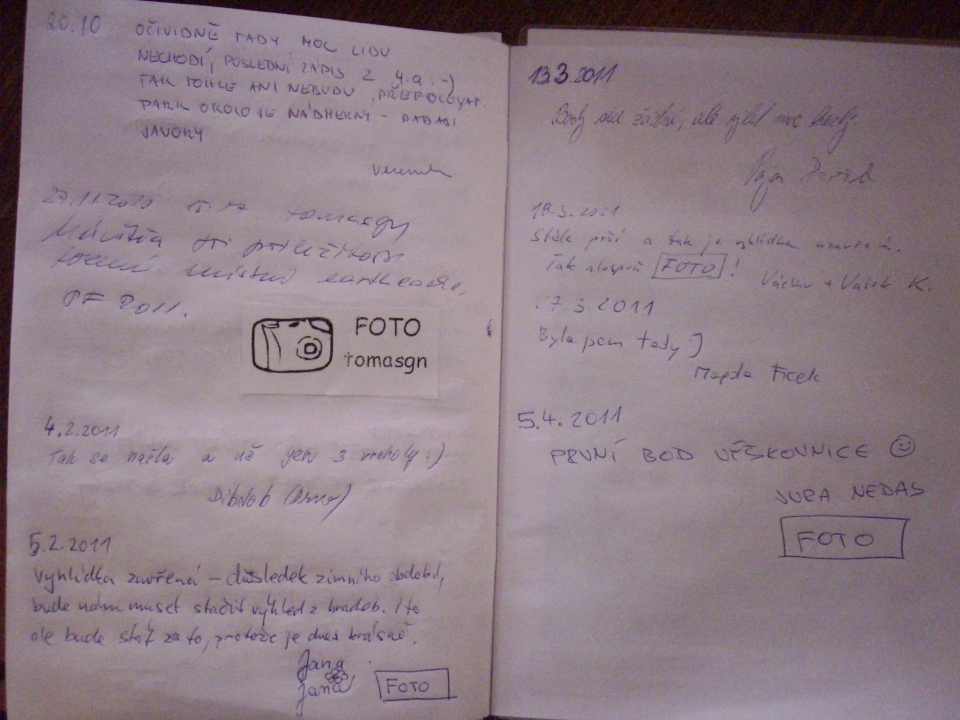 20.10 OČIVIDNĚ TADY MOC LIDU
NECHODÍ, POSLEDNÍ ZÁPIS Z 4.a :-)
TAK TOHLE ANI NEBUDU PŘEFOCOVAT.
PARK OKOLO JE NÁDHERNÝ - PADAJÍ
JAVORY
tomasgn
při příležitosti
místní earthcache,
PF 2011.
FOTO
tomasgn
4.2.2011
Tak se našla a už jen 3 vrcholy :)
5.2.2011
Vyhlídka zavřená - důsledek zimního období,
bude nám muset stačit výhled z hradeb. I to
ale bude stát za to, protože je dnes krásně.
Jana
Jana
FOTO
13.3 2011
Body sice žádné, ale výlet moc hezký.
19.3.2011
Stále prší a tak je vyhlídka uzavřená.
Tak alespoň FOTO!
Václav + Vašek K.
27.3 2011
Byla jsem tady :)
Magda Ficek
5.4.2011
PRVNÍ BOD VĚŠKOVNICE ☺
JURA NEDAS
FOTO